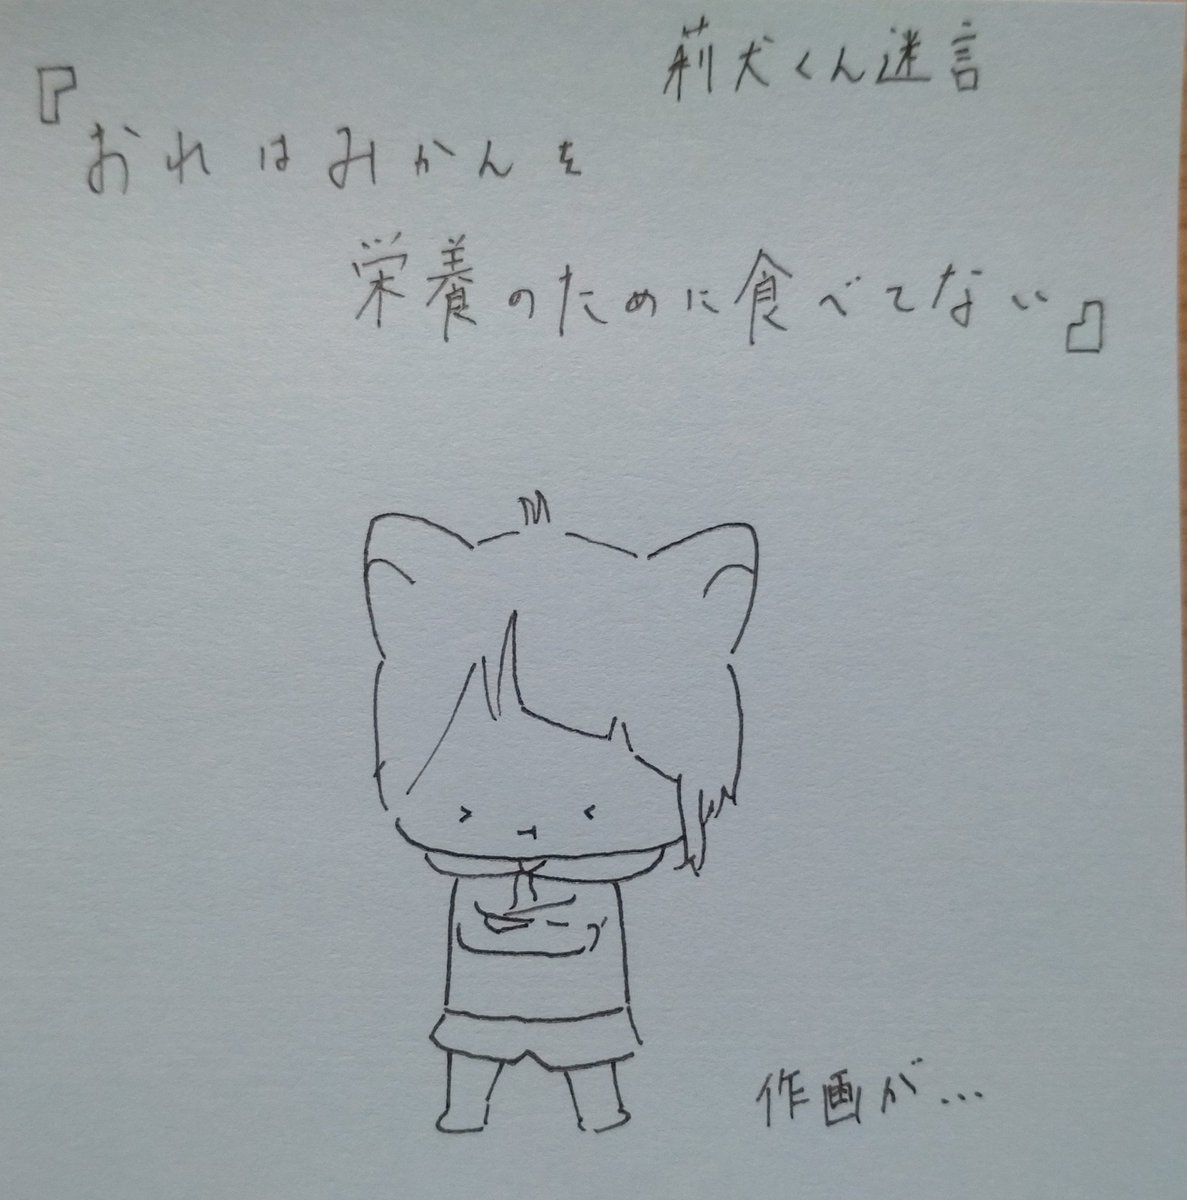 莉犬くん迷言
『おれはみかんを
栄養のために食べてない』
作画が…